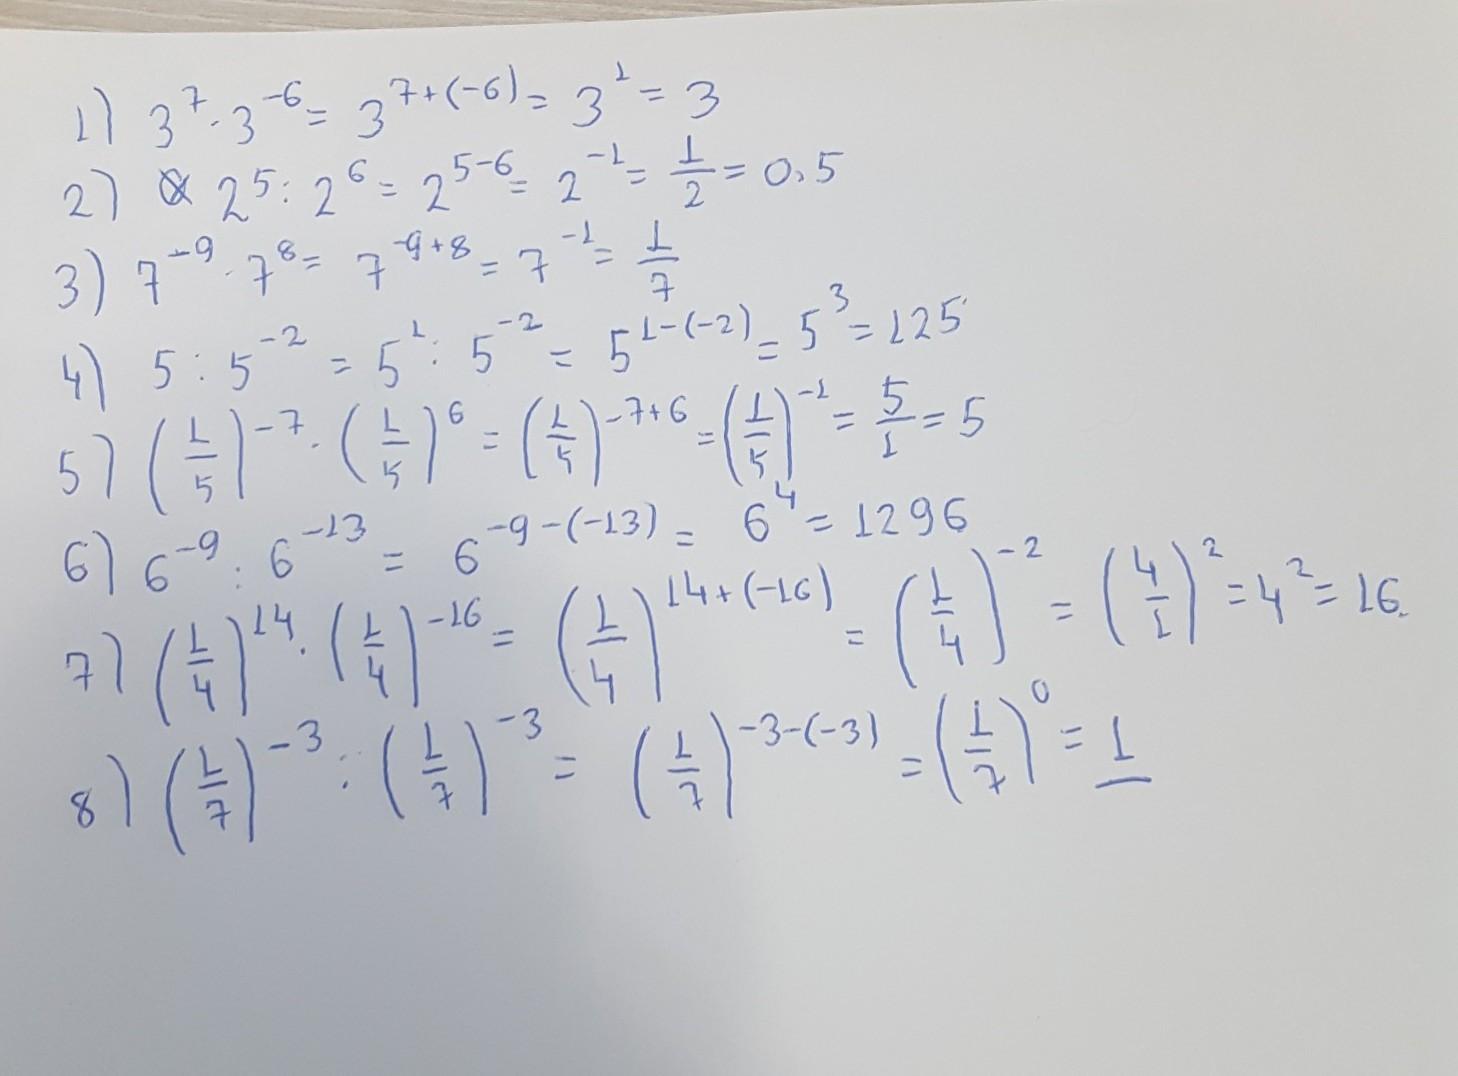 1) 3^7 · 3^-6 = 3^7+(-6) = 3^1 = 3
2) 2^5 : 2^6 = 2^5-6 = 2^-1 = 1/2 = 0.5
3) 7^-9 · 7^8 = 7^-9+8 = 7^-1 = 1/7
4) 5 : 5^-2 = 5^1 : 5^-2 = 5^1-(-2) = 5^3 = 125
5) (1/5)^-7 · (1/5)^6 = (1/5)^-7+6 = (1/5)^-1 = 5/1 = 5
6) 6^-9 : 6^-13 = 6^-9-(-13) = 6^4 = 1296
7) (1/4)^14 · (1/4)^-16 = (1/4)^14+(-16) = (1/4)^-2 = (4/1)^2 = 4^2 = 16.
8) (1/7)^-3 : (1/7)^-3 = (1/7)^-3-(-3) = (1/7)^0 = 1